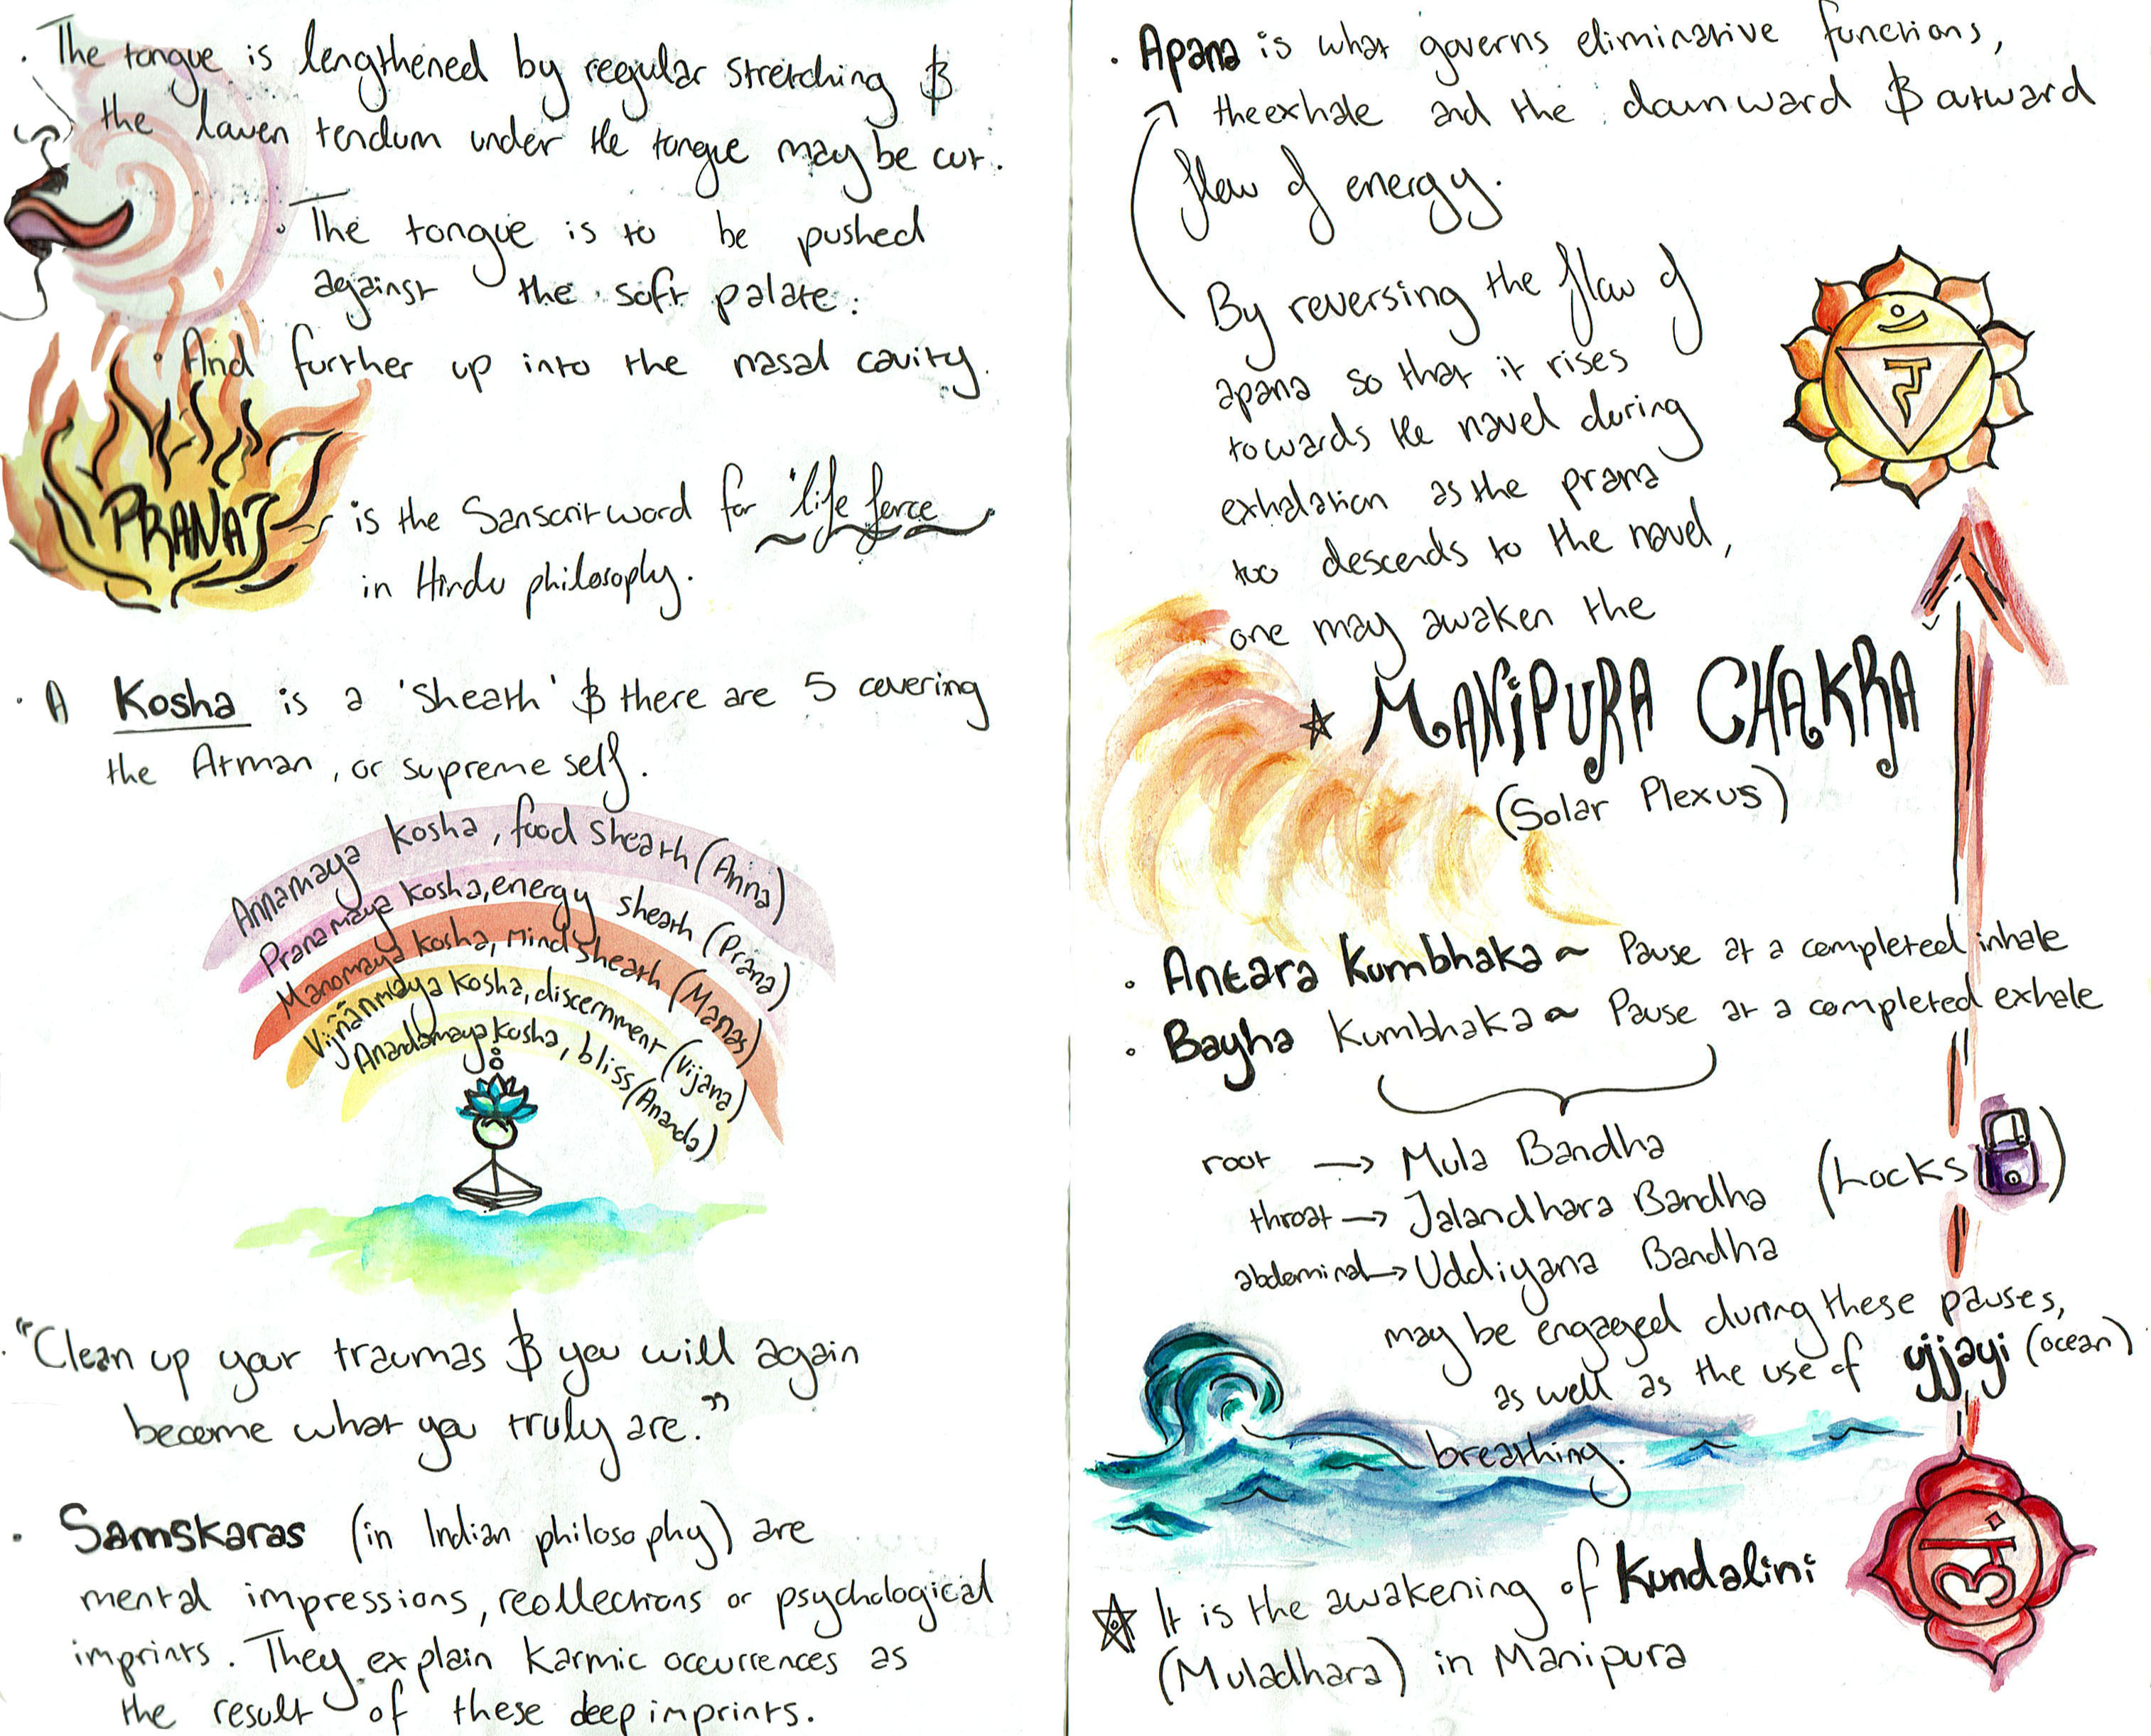 · The tongue is lengthened by regular stretching &
the lower tendum under the tongue may be cut.
· The tongue is to be pushed
against the soft palate.
· And further up into the nasal cavity.
PRANA is the Sanscrit word for 'life force
in Hindu philosophy.
· A Kosha is a 'sheath' & there are 5 covering
the Atman, or supreme self.
Annamaya kosha, food sheath (Anna)
Pranamaya kosha, energy sheath (Prana)
Manomaya kosha, mind sheath (Manas)
Vijñānmaya kosha, discernment (Vijana)
Anandamaya kosha, bliss (Ananda)
· "Clean up your traumas & you will again
become what you truly are."
· Samskaras (in Indian philosophy) are
mental impressions, recollections or psychological
imprints. They explain karmic occurrences as
the result of these deep imprints.
· Apana is what governs eliminative functions,
the exhale and the downward & outward
flow of energy.
By reversing the flow of
apana so that it rises
towards the navel during
exhalation as the prana
too descends to the navel,
one may awaken the
MANIPURA CHAKRA
(Solar Plexus)
· Antara Kumbhaka ~ Pause at a completed inhale
· Bayha Kumbhaka ~ Pause at a completed exhale
root → Mula Bandha
throat → Jalandhara Bandha (Locks)
abdominal → Uddiyana Bandha
may be engaged during these pauses,
as well as the use of ujjayi (ocean)
breathing.
It is the awakening of Kundalini
(Muladhara) in Manipura